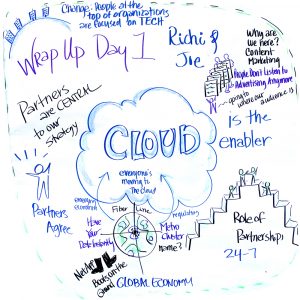 Change: People at the
top of organizations
are focused on TECH
Wrap Up Day 1
Richi &
Joe
Why are
we here?
Content
Marketing
People Don't Listen to
Advertising Anymore
going to
where our audience is
Partners
are CENTRAL
to our
strategy
CLOUD
is the
enabler
everyone's
moving to
the cloud
Partners
Agree
emerging
economies
Fiber
Lane
regulatory
Have
Your
Data Instantly
Metro
Cluster
name?
Role of
Partnership
24-7
Boots on the
Ground
GLOBAL ECONOMY